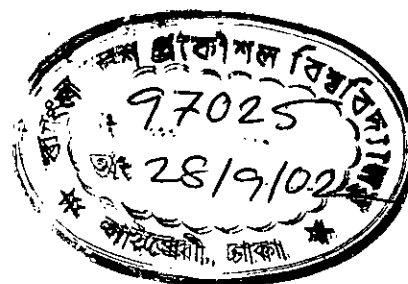 বাংলাদেশ প্রকৌশল বিশ্ববিদ্যালয়
97025
তাং 28/9/02
লাইব্রেরী, ঢাকা